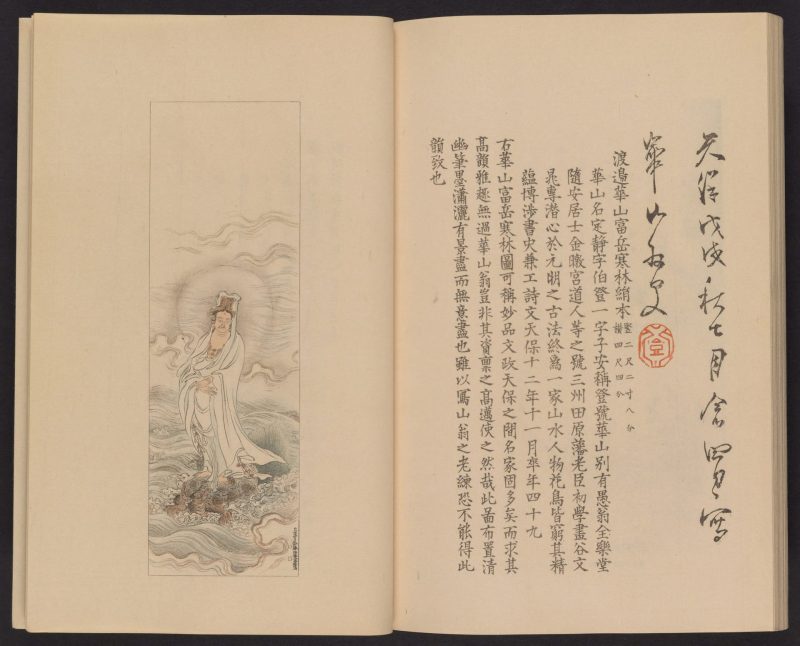 天保戊戌秋七月念四日寫
崋山外史
登
渡邉華山富岳寒林絹本
竪二尺二寸八分
横四尺四分
華山名定靜字伯登一字子安稱登號華山別有愚翁全樂堂
隨安居士金暾宮道人等之號三州田原藩老臣初學畫谷文
晁專潜心於元明之古法終爲一家山水人物花鳥皆窮其精
蘊博渉書史兼工詩文天保十二年十一月卒年四十九
右華山富岳寒林圖可稱妙品文政天保之間名家固多矣而求其
高韻雅趣無過華山翁豈非其資稟之高邁使之然哉此啚布置清
幽筆墨瀟灑有景盡而無意盡也雖以寫山翁之老練恐不能得此
韻致也